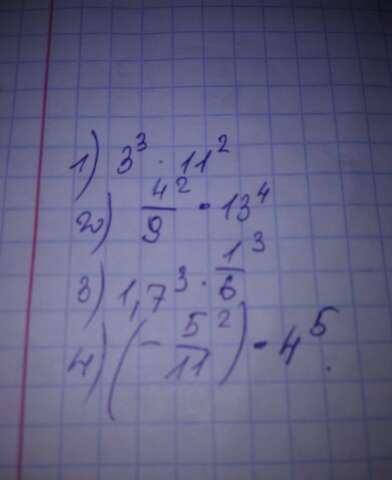 1) 3³ · 11²
2) 4²/9 · 13⁴
3) 1,7³ · 1³/6
4) (- 5²/11) · 4⁵.